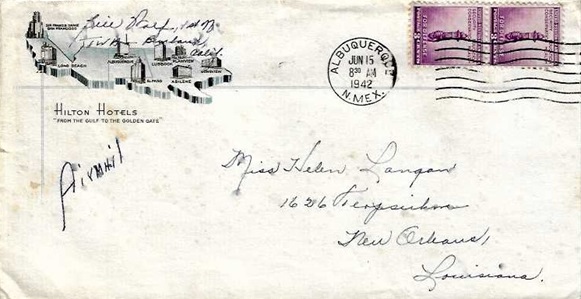 SIR FRANCIS DRAKE
SAN FRANCISCO
T.W.A. - Burbank,
Calif.
LONG BEACH
ALBUQUERQUE
LUBBOCK
PLAINVIEW
LONGVIEW
EL PASO
ABILENE
HILTON HOTELS
"FROM THE GULF TO THE GOLDEN GATE"
ALBUQUERQUE
JUN 15
8 30 AM
1942
N. MEX.
Airmail
Miss Helen Langan
1626 Terpsichore
New Orleans,
Louisiana.